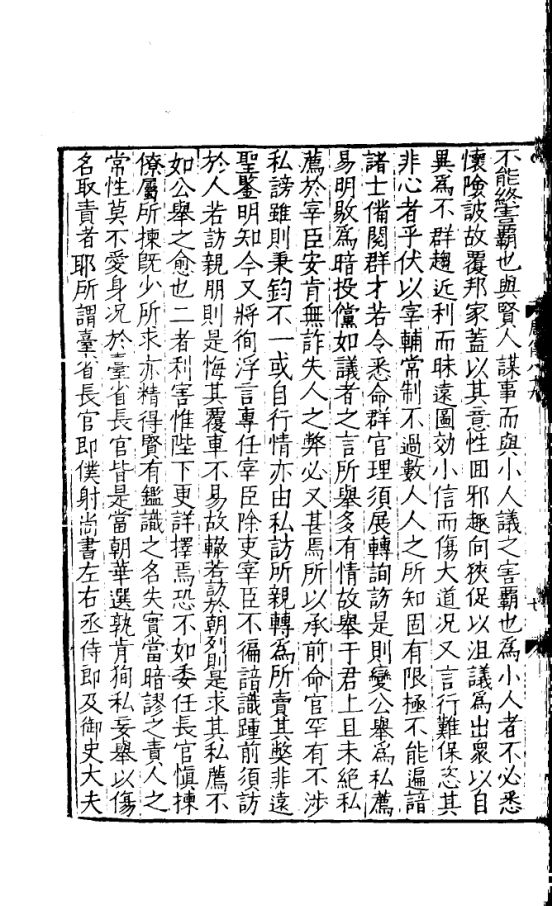 不能終善霸也與賢人謀事而與小人議之害霸也爲小人者不必悉
懷險詖故覆邦家蓋以其意性回邪趣向狹促以沮議爲出衆以自
異爲不群趨近利而昧遠圖効小信而傷大道况又言行難保恣其
非心者乎伏以宰輔常制不過數人人之所知固有限極不能遍諳
諸士備閱群才若令悉命群官理須展轉詢訪是則變公舉爲私薦
易明敭爲暗投儻如議者之言所舉多有情故舉于君上且未絶私
薦於宰臣安肯無詐失人之弊必又甚焉所以承前命官罕有不涉
私謗雖則秉鈞不一或自行情亦由私訪所親轉爲所賣其獘非遠
聖鑒明知今又將徇浮言專任宰臣除吏宰臣不徧諳識踵前須訪
於人若訪親朋則是悔其覆車不易故轍若訪於朝列則是求其私薦不
如公舉之愈也二者利害惟陛下更詳擇焉恐不如委任長官愼揀
僚屬所揀旣少所求亦精得賢有鑑識之名失實當暗謬之責人之
常性莫不愛身况於臺省長官皆是當朝華選孰肯徇私妄舉以傷
名取責者耶所謂臺省長官即僕射尚書左右丞侍郎及御史大夫